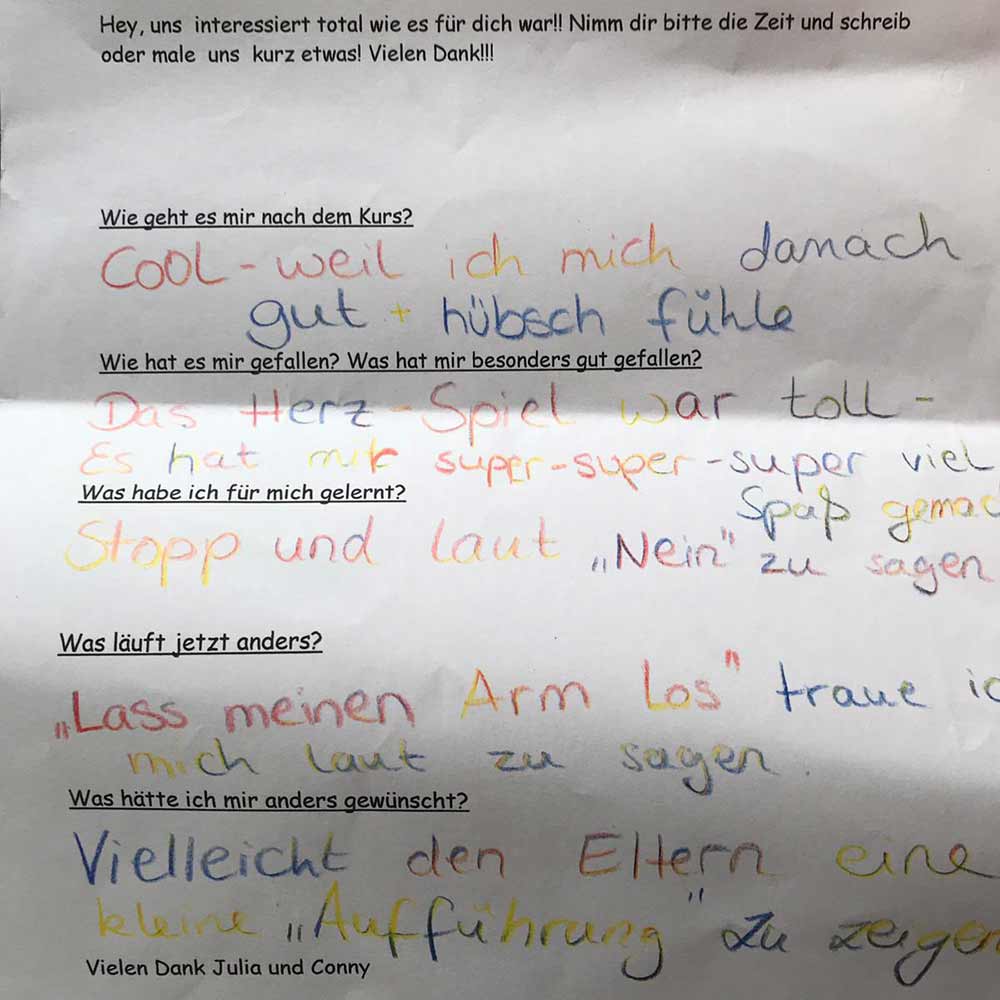 Hey, uns interessiert total wie es für dich war!! Nimm dir bitte die Zeit und schreib
oder male uns kurz etwas! Vielen Dank!!!
Wie geht es mir nach dem Kurs?
COOL - weil ich mich danach
gut + hübsch fühle
Wie hat es mir gefallen? Was hat mir besonders gut gefallen?
Das Herz-Spiel war toll -
Es hat mir super-super-super viel
Spaß gemac
Was habe ich für mich gelernt?
Stopp und laut „Nein" zu sagen
Was läuft jetzt anders?
„Lass meinen Arm los" traue ic
mich laut zu sagen.
Was hätte ich mir anders gewünscht?
Vielleicht den Eltern eine
kleine „Aufführung" zu zeigen
Vielen Dank Julia und Conny